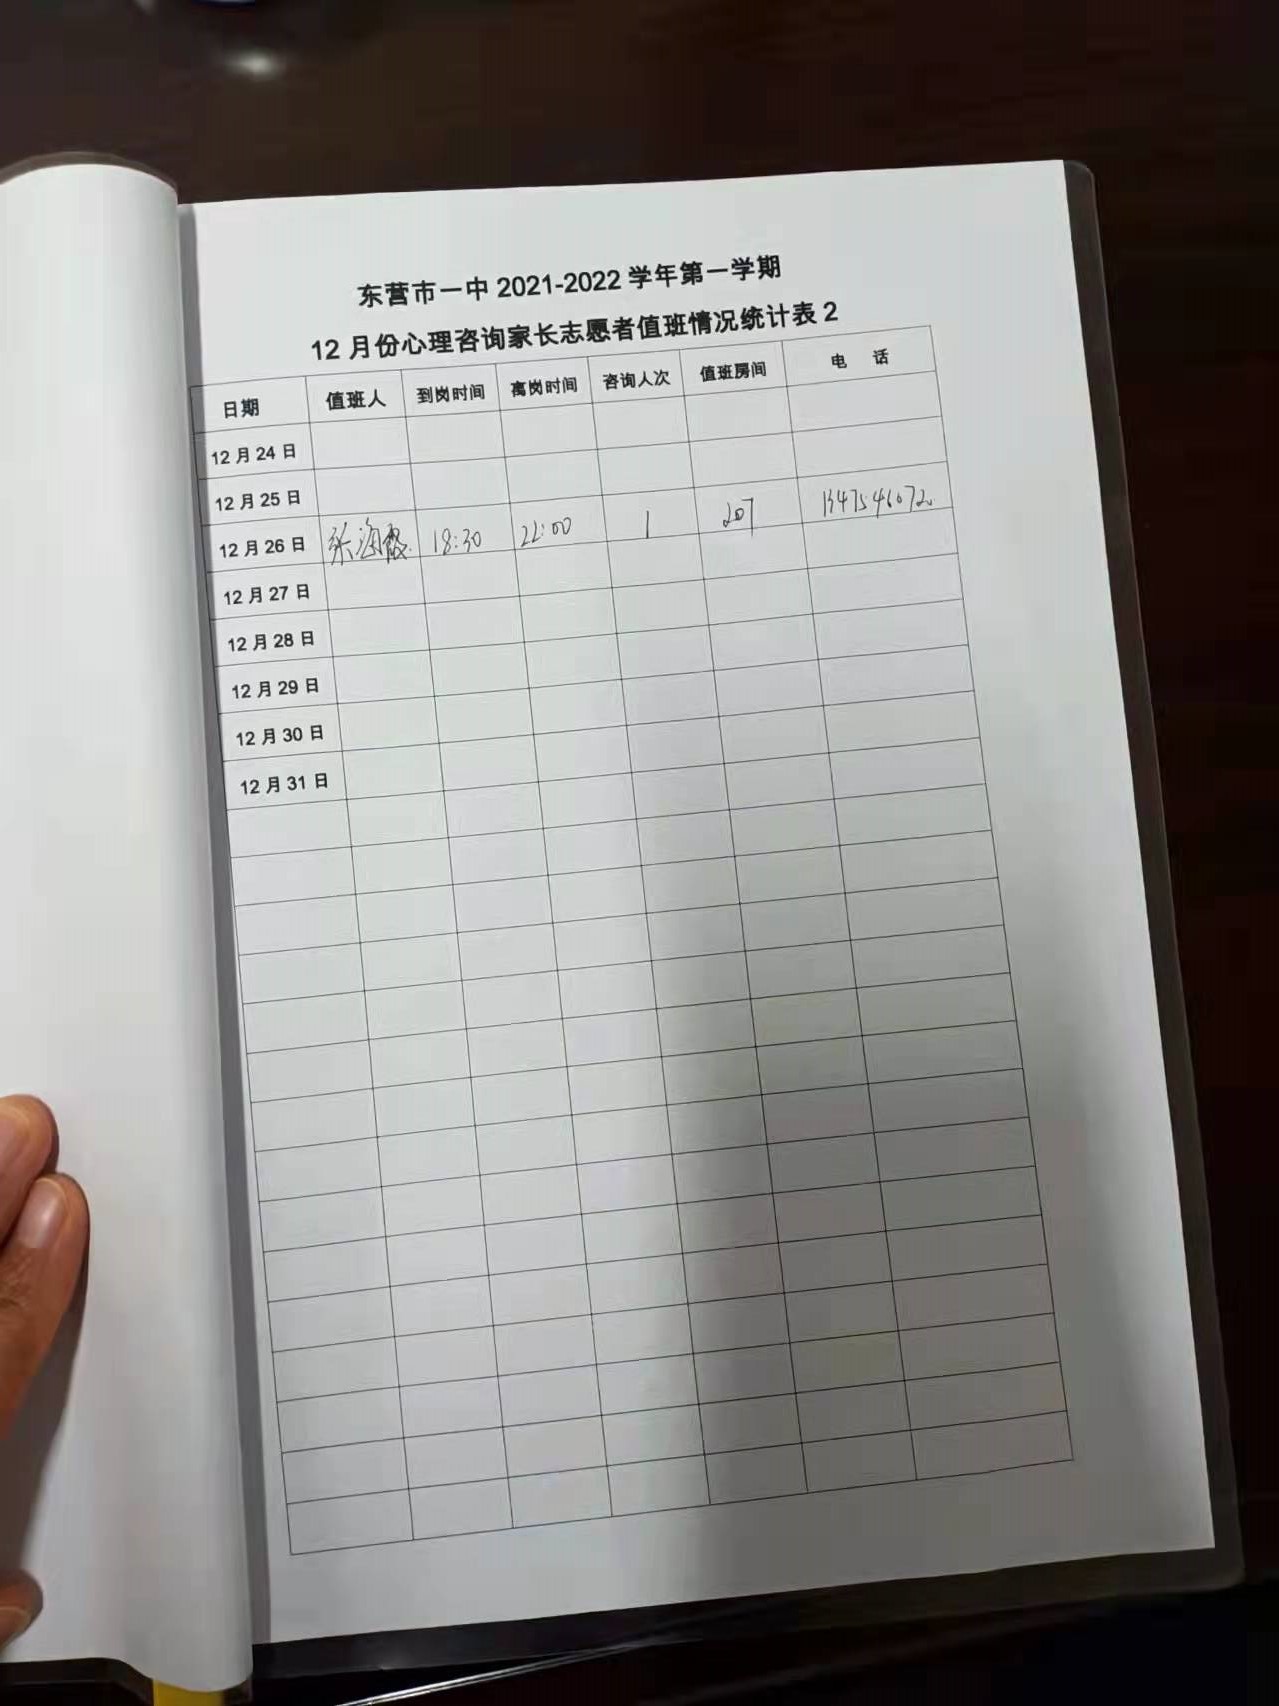 东营市一中 2021-2022 学年第一学期
12 月份心理咨询家长志愿者值班情况统计表 2
日期 值班人 到岗时间 离岗时间 咨询人次 值班房间 电 话
12 月 24 日
12 月 25 日
12 月 26 日 张海霞 18:30 22:00 1 207
12 月 27 日
12 月 28 日
12 月 29 日
12 月 30 日
12 月 31 日